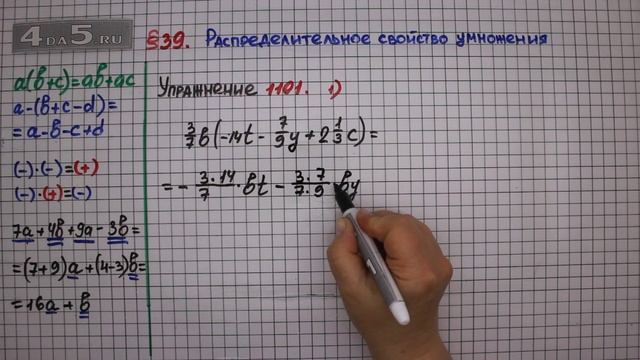 4DA5.RU
§39. Распределительное свойство умножения
a(b+c)=ab+ac
a-(b+c-d)=
=a-b-c+d
(-)·(-)=(+)
(-)·(+)=(-)
7a+4b+9a-3b=
=(7+9)a+(4-3)b=
=16a+b
Упражнение 1101. 1)
3/7 b(-14t - 7/9 y + 2 1/3 c) =
= - 3·14/7 · bt - 3·7/7·9 by